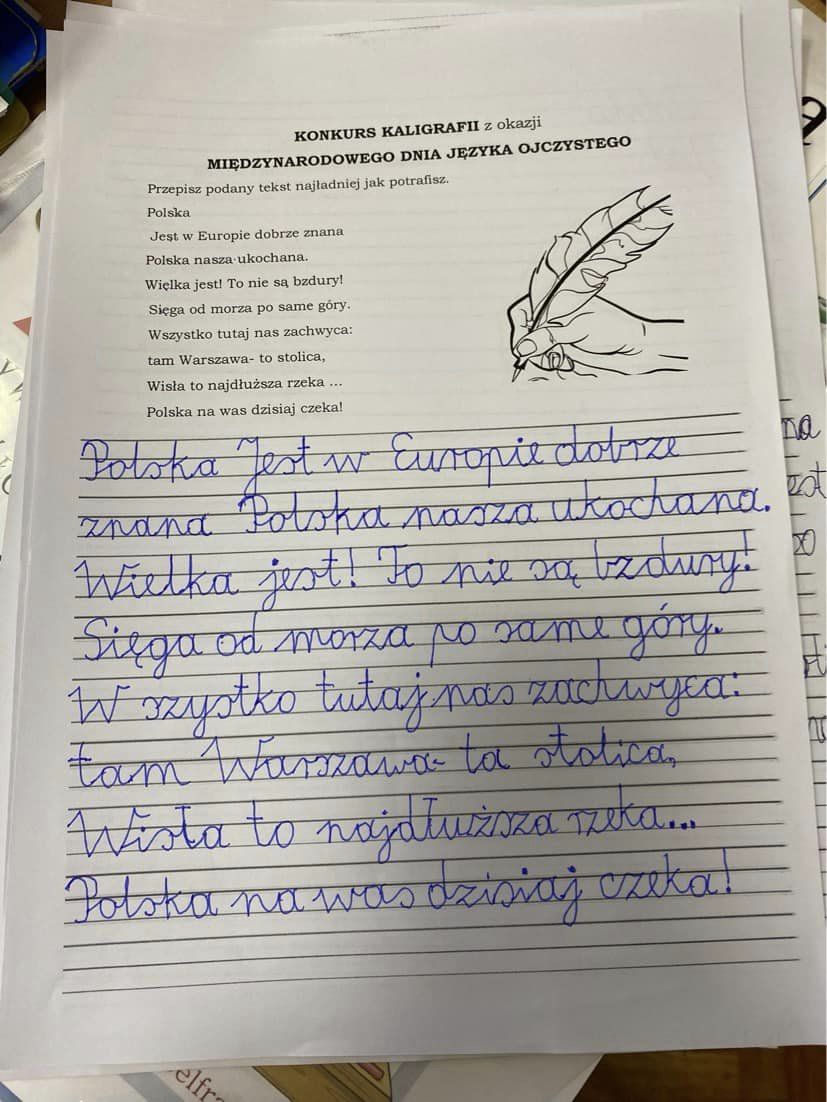 KONKURS KALIGRAFII z okazji
MIĘDZYNARODOWEGO DNIA JĘZYKA OJCZYSTEGO
Przepisz podany tekst najładniej jak potrafisz.
Polska
Jest w Europie dobrze znana
Polska nasza ukochana.
Więlka jest! To nie są bzdury!
Sięga od morza po same góry.
Wszystko tutaj nas zachwyca:
tam Warszawa- to stolica,
Wisła to najdłuższa rzeka ...
Polska na was dzisiaj czeka!
Polska Jest w Europie dobrze
znana Polska nasza ukochana.
Wielka jest! To nie są bzdury!
Sięga od morza po same góry.
Wszystko tutaj nas zachwyca:
tam Warszawa- ta stolica,
Wisła to najdłuższa rzeka...
Polska na was dzisiaj czeka!
na
est
elfr